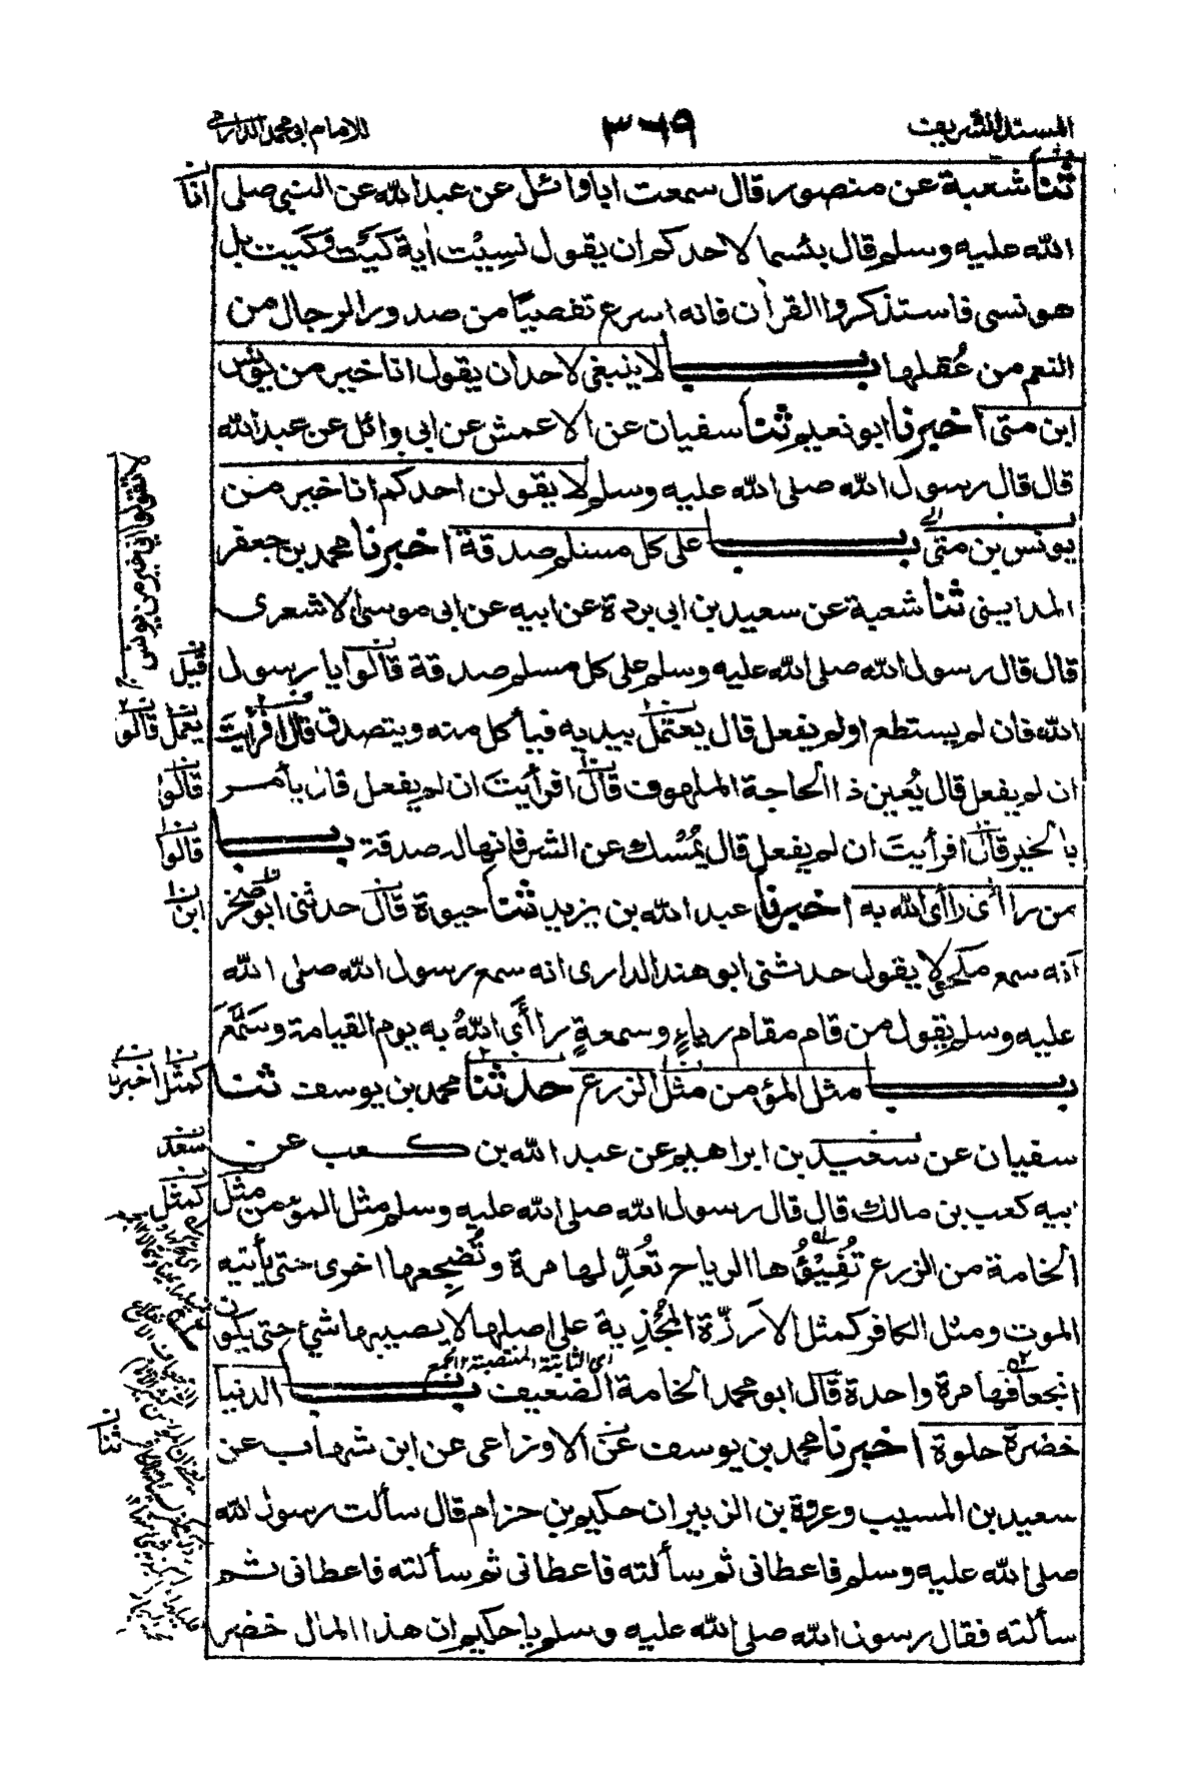 المسند الشريف ٣٦٩ للامام ابى محمد الدارمى
ثنا شعبة عن منصور قال سمعت ابا وائل عن عبد الله عن النبي صلى
انا
الله عليه وسلم قال بئسما لاحدكم ان يقول نسيت اية كَيَتَ وكَيت بل
هو نسى فاستذكروا القرأن فانه اسرع تفصيًا من صدور الرجال من
النعم من عُقلها باب لا ينبغى لاحد ان يقول انا خير من يونس
ابن متى اخبرنا ابو نعيم ثنا سفيان عن الاعمش عن ابى وائل عن عبد الله
قال قال رسول الله صلى الله عليه وسلم لا يقولن احدكم انا خير من
لا تقولوا انى خير من يونس
يونس بن متى باب على كل مسلم صدقة اخبرنا محمد بن جعفر
المداينى ثنا شعبة عن سعيد بن ابى بردة عن ابيه عن ابى موسى الاشعرى
قال قال رسول الله صلى الله عليه وسلم على كل مسلم صدقة قالوا يا رسول
قيل
الله فان لم يستطع اولم يفعل قال يعتمل بيديه فيأكل منه ويتصدق قال افرأيتَ
يعمل قالو
ان لم يفعل قال يُعين ذا الحاجة الملهوف قال افرأيتَ ان لم يفعل قال يأمر
قالوا
بالخير قال افرأيتَ ان لم يفعل قال يُمْسك عن الشر فانها له صدقة باب
قالوا
من راأى راأى الله به اخبرنا عبد الله بن يزيد ثنا حيوة قال حدثنى ابو صخر
ابن
انه سمع مكحولا يقول حدثنى ابو هند الدارى انه سمع رسول الله صلى الله
عليه وسلم يقول من قام مقام رياءٍ وسمعةٍ راأَى اللهُ به يوم القيامة وسَمَّعَ
باب مثل المؤمن مثل الزرع حدثنا محمد بن يوسف ثنا
كمثل اخبرنا
سفيان عن سعيد بن ابراهيم عن عبد الله بن كعب عن
سعد
ابيه كعب بن مالك قال قال رسول الله صلى الله عليه وسلم مثل المؤمن مثل
كمثل
الخامة من الزرع تُفِيْئُها الرياح تُعَدِّلها مرة وتُضجِعها اخرى حتى يأتيه
الموت ومثل الكافر كمثل الأَرزَّة المُجْذِية على اصلها لا يصيبها شئ حتى يكون
اى الثابتة المنتصبة
انجعافها مرة واحدة قال ابو محمد الخامة الضعيف باب الدنيا
خضرة حلوة اخبرنا محمد بن يوسف عن الاوزاعى عن ابن شهاب عن
ثنا
سعيد بن المسيب وعروة بن الزبير ان حكيم بن حزام قال سألت رسول الله
صلى الله عليه وسلم فاعطانى ثم سألته فاعطانى ثم سألته فاعطانى ثم
سألته فقال رسول الله صلى الله عليه وسلم يا حكيم ان هذا المال خضر